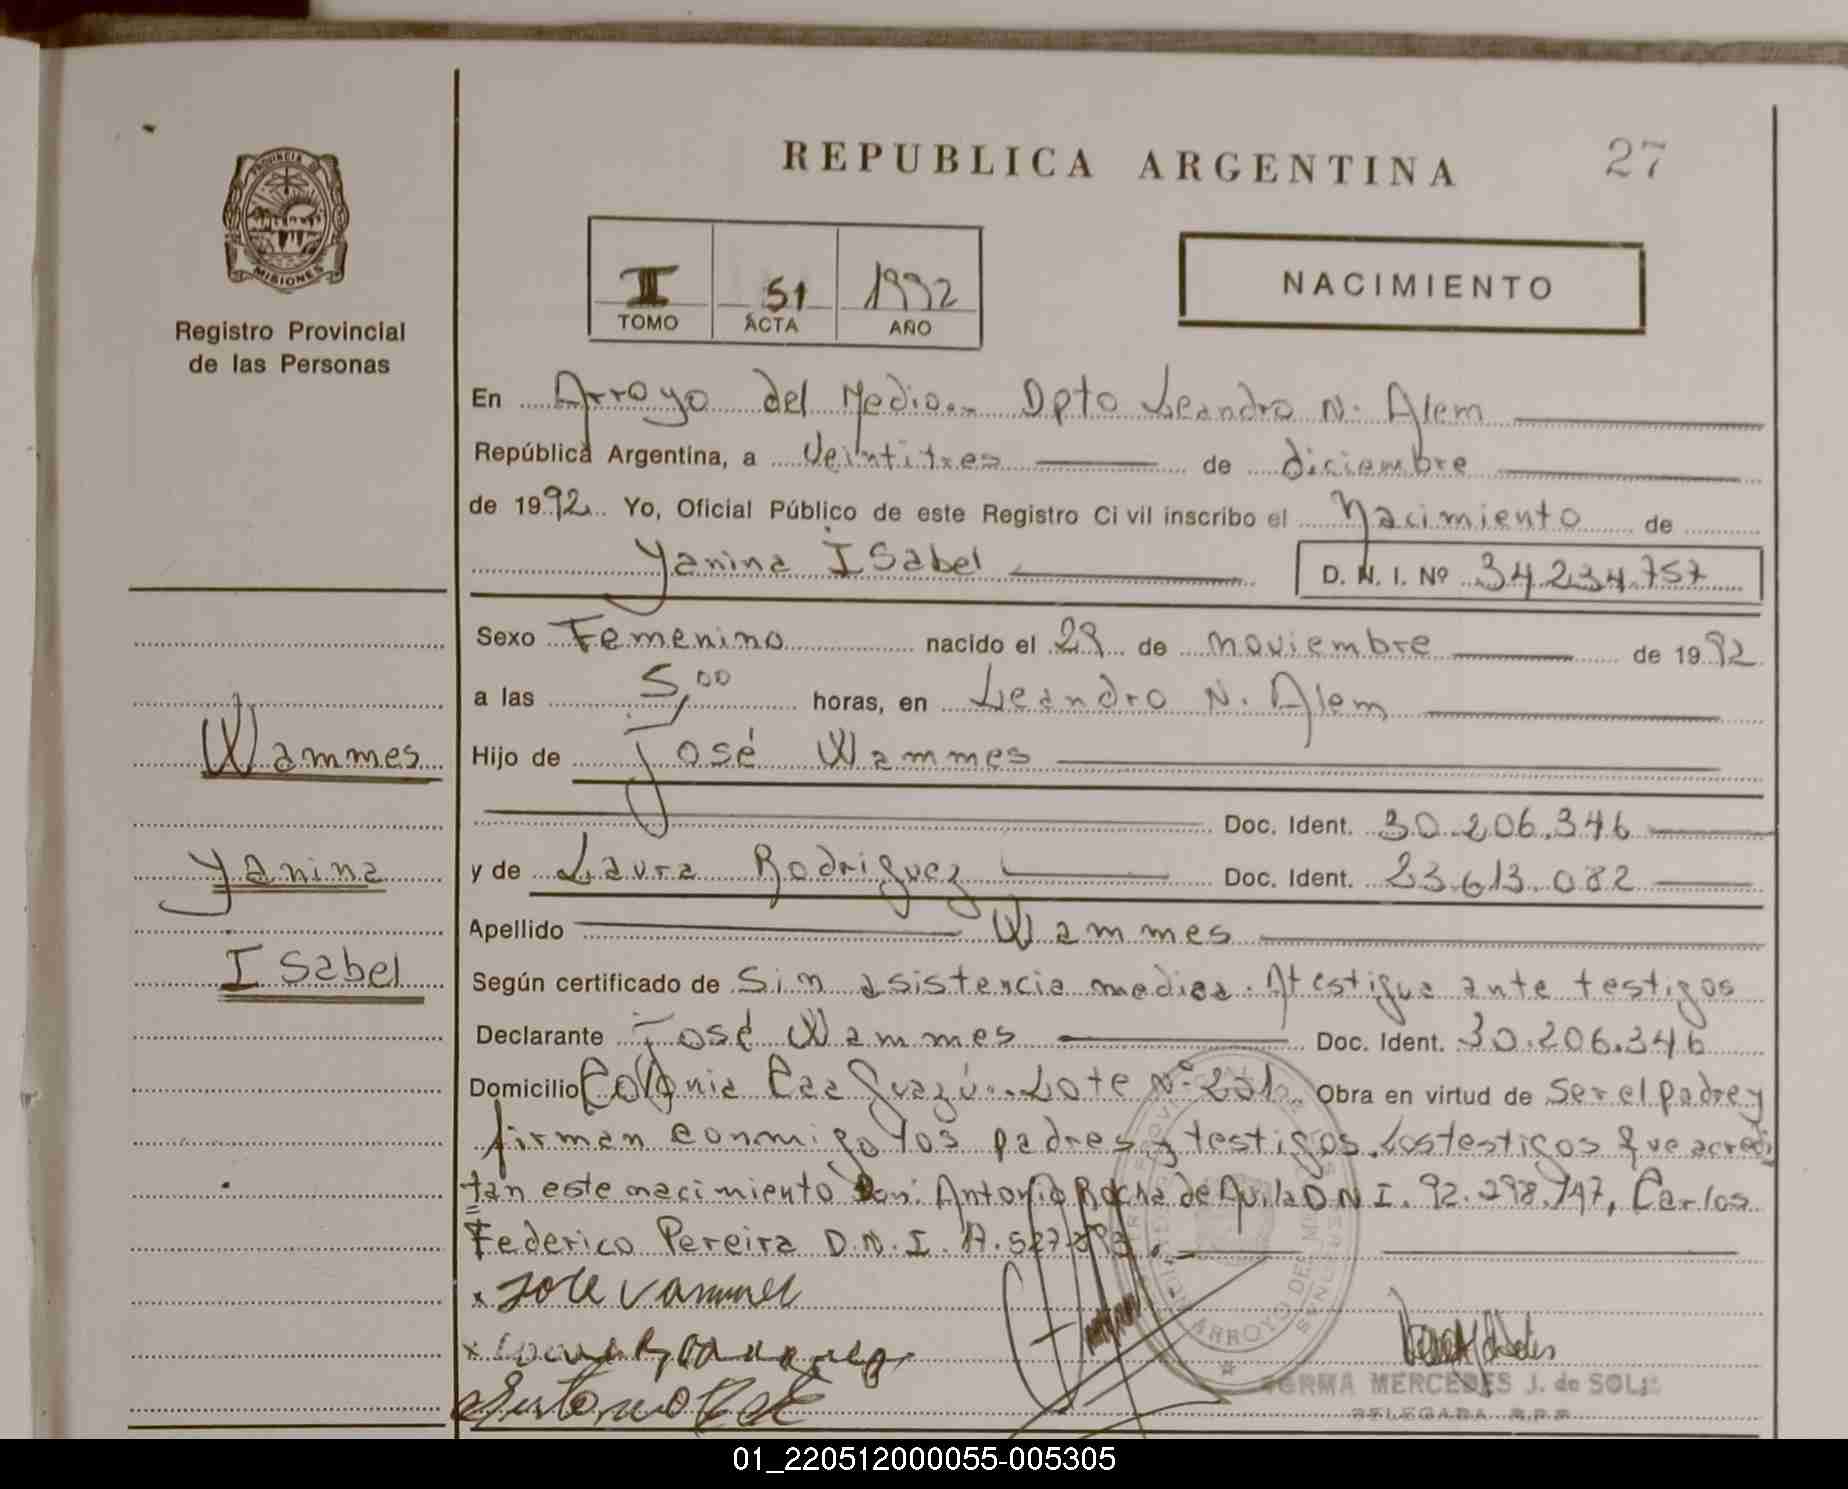 PROVINCIA DE
MISIONES
Registro Provincial
de las Personas
REPUBLICA ARGENTINA
27
II
51
1992
TOMO
ACTA
AÑO
NACIMIENTO
En Arroyo del Medio.- Dpto Leandro N. Alem
República Argentina, a Veintitres de diciembre
de 1992. Yo, Oficial Público de este Registro Civil inscribo el Nacimiento de
Yanina ISabel D. N. I. Nº 34.234.757
Sexo Femenino nacido el 29 de noviembre de 1992
a las 5,00 horas, en Leandro N. Alem
Wammes
Hijo de José Wammes
Doc. Ident. 30.206.346
Yanina
y de Laura Rodriguez Doc. Ident. 23.613.082
Apellido Wammes
ISabel
Según certificado de Sin asistencia medica. Atestigua ante testigos
Declarante José Wammes Doc. Ident. 30.206.346
Domicilio Colonia Caa Guazú.- Lote Nº 231. Obra en virtud de Ser el padre y
firman conmigo los padres y testigos. Los testigos que acredi
tan este nacimiento son: Antonio Rocha de Avila D.N.I. 92.298.747, Carlos
Federico Pereira D.N.I. 17.527.
ARROYO DEL
NORMA MERCEDES J. de SOLIS
DELEGADA R.P.P.
01_220512000055-005305